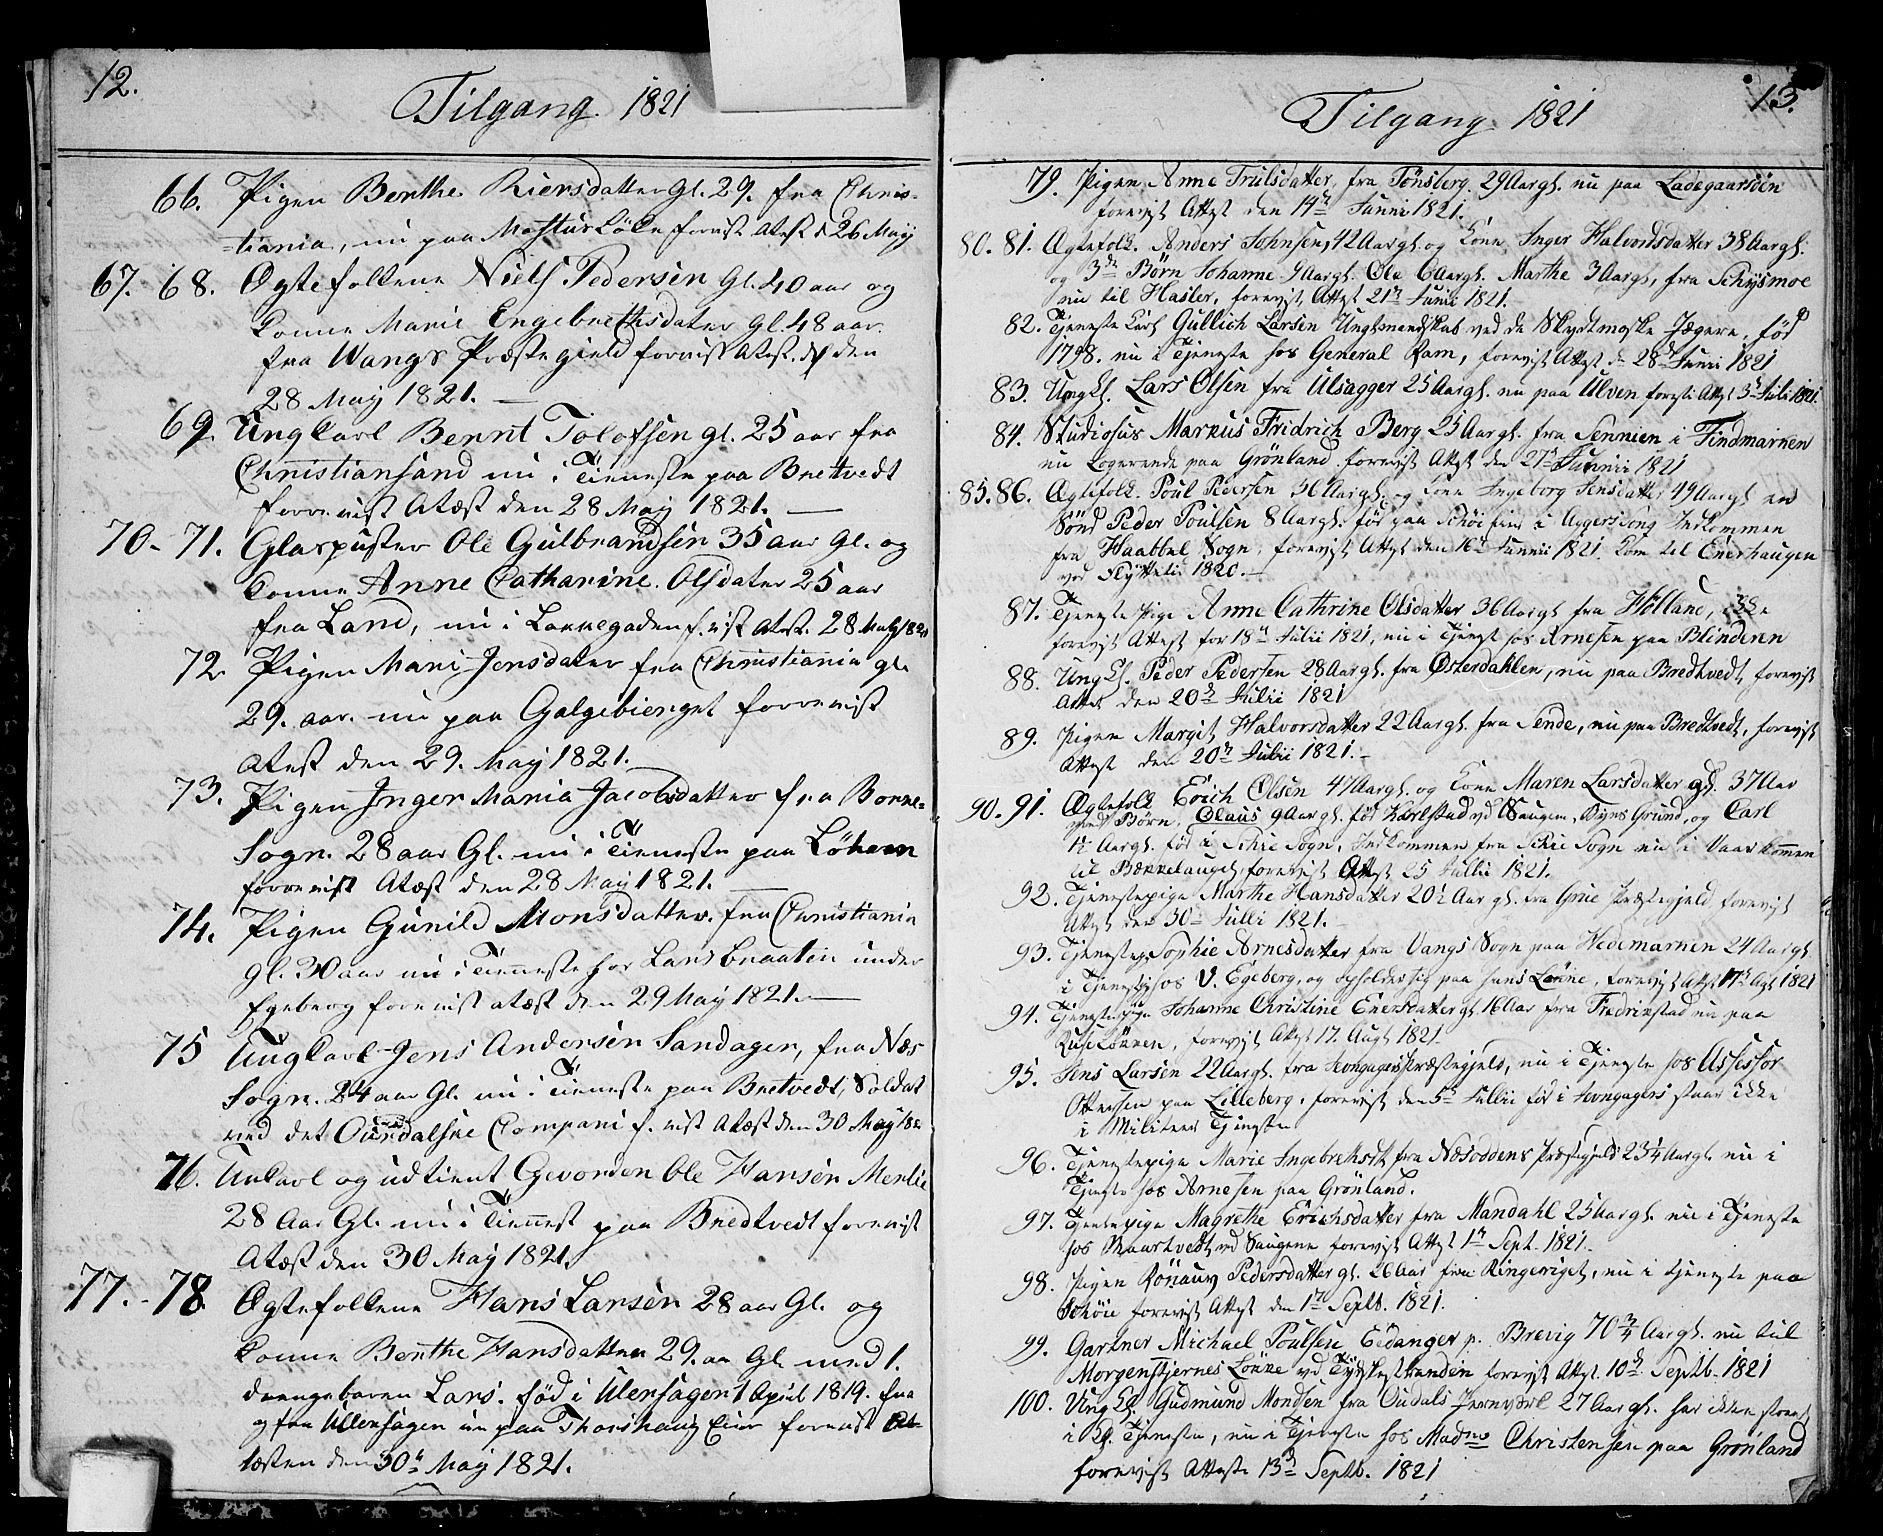 12.
Tilgang 1821
66. Pigen Berthe Kiersdatter Gl. 29. fra Chris-
tiania, nu paa Løkke forevist Atest d 26 Maij
67. 68. Ægtefolkene Niels Pedersen Gl. 40 aar og
konne Marie Engebrethsdater Gl. 48 aar.
fra Wangs Præstegield forevist Atest. den
28 Maij 1821.
69. Ungkarl Bernt Tolofsen gl. 25 aar fra
Christiansand nu i Tieneste paa Bretvedt
forevist Atæst den 28 Maij 1821.
70 - 71. Glaspuster Ole Gulbrandsen 35 aar Gl. og
konne Anne Catharine Olsdater 25 aar
fra Land, nu i Lakkegaden f. vist Atest. 28 Maij 1821
72. Pigen Mari Jensdater fra Christiania gl.
29. aar. nu paa Galgebierget forrevist
Atest den 29. Maij 1821.
73. Pigen Inger Maria Jacobsdatter fra Borre-
Sogn. 28 aar Gl. nu i Tieneste paa Løkern
forrevist Atæst den 28 Maij 1821.
74. Pigen Gunild Monsdatter. fra Christiania
gl. 30 aar nu i Tienneste hos Lars Braaten under
Egeberg forevist atæst den 29 Maij 1821.
75 Ungkarl Jens Andersen Sandager, fra Næs
Sogn. 24 aar Gl. nu i Tieneste paa Bretvedt, Soldat
ved det Ourdalske Compani f. vist Atæst den 30 Maij 182
76. Unkarl og udtient Gevorben Ole Hansen Merlie
28 Aar Gl. nu i Tiennest paa Bredtvedt forevist
Atæst den 30 Maij 1821.
77. - 78 Ægtefolkene Hans Larsen 28 aar Gl. og
konne Berthe Hansdatter 29. aa Gl. med 1.
drengebarn Lars. fød i Ulensagen 1 April 1819. fra
og fra Ullensagen nu paa Thorshaug Eier forevist At-
tæsten den 30te Maij 1821.
13.
Tilgang 1821
79. Pigen Anne Trulsdatter, fra Tønsberg. 29 Aar gl. nu paa Ladegaarsøen
forevist Attest den 14de Junni 1821.
80. 81. Ægtefolk. Anders Johnsen, 42 Aar gl. og Kone Inger Halvorsdatter 38 Aar gl.
og 3de Børn Johanne 9 Aar gl. Ole 6 Aar gl. Marthe 3 Aar gl, fra Schysmoe
nu til Hasler, forevist Attest 21de Junii 1821.
82. Tjeneste Karl Gullich Larsen Unghmandskab ved de Skydtmoske Jægere, fød
1798. nu i Tjeneste hos General Ram, forevist Attest d. 28de Junii 1821
83. Ung Kl. Lars Olsen fra Ulsagger 25 Aar gl. nu paa Ulven Attest 3de Juli 1821.
84. Studiosus Markus Fridrich Berg 25 Aar gl. fra Sennien i Findmarken
nu Logerende paa Grønland. forevist Attest den 21de Junnii 1821
85. 86. Ægtefolk. Poul Pedersen 36 Aar gl. og Kone Ingeborg Jensdatter 49 Aar gl en
Sønd Peder Poulsen 8 Aar gl. før paa i Aggersong Indkommen
fra Haabbel Sogn, forevist Attest den 16de Junnii 1821. kom til Enerhaugen
ved Flyttetid 1820.
87. Tjeneste Pige Anne Cathrine Olsdatter 36 Aar gl fra Hølland, ikke
forevist Attest før 18de Julii 1821, nu i Tjenest hos Arnesen paa Blindern
88. Ung Kl. Peder Pedersen 28 Aar gl. fra Østerdahlen, nu paa Bredtvedt, forevist
Attest den 20de Julii 1821
89. Pigen Margit Halvorsdatter 22 Aar gl. fra Sende, nu paa Bredtvedt, forevist
Attest den 20de Julii 1821.
90. 91. Ægtefolk Erich Olsen 47 Aar gl. og Kone Maren Larsdatter gl. 37 Aar
med Børn. Claus 9 Aar gl. fød Karlstad vd Saugene, Byns Grund, og Carl
1½ Aar gl. fød i Schie Sogn, Indkommen fra Schie Sogn nu i Vaar kommen
til Bækkelauget, forevist Attest 25 Julii 1821.
92. Tjenestepige Marthe Hansdatter 20½ Aar gl. fra Grue Præstegjeld forevist
Attest den 30de Julli 1821.
93. Tjenestepg Sophie Arnesdatter fra Vangs Sogn paa Hedemarken 24 Aar gl
i Tjenest hos V. Egeberg, og opholder sig paa hans Løkke, forevist Attest 17de Agt 1821
94. Tjenestepige Johanne Christine Enersdatter gl 16 Aar fra Fredrikstad nu paa
Ruseløkken, forevist Attest 17. Augt 1821.
95. Jens Larsen 22 Aar gl. fra Præstegjeld, nu i Tjeneste hos Assessor
Ottersen paa Lilleberg, forevist den 5de Jullii fød i staar ikke
i Militær Tjeneste
96. Tjenestepige Marie Ingebrehsdt fra Næsoddens Præstgjeld 23¼ Aar gl. nu i
Tjeneste hos Arnesen paa Grønland.
97. Tjenestepige Magrethe Erichsdatter fra Mandahl 25 Aar gl. nu i Tjeneste
hos Maartvedt vd Saugene forevist Attest 1de Sept. 1821.
98. Pigen Rønauw Pedersdatter gl. 26 Aar fra Ringeriget, nu i tjeneste paa
Schøie forevist Attest den 1de Septb. 1821.
99. Gartner Michael Poulsen Eedanger p. Brevig 70¾ Aar gl. nu til
Morgenstjernes Løkke vd Tydskestranden forevist Attest. 10de Septb. 1821
100. Ung Kl. Gudmund Mondsen fra Oudals Jernverk 27 Aar gl. har ikke staaet
i Kl. Tjeneste, nu i Tjeneste hos Madme Christensen paa Grønland
forevist Atteste 13de Septb. 1821